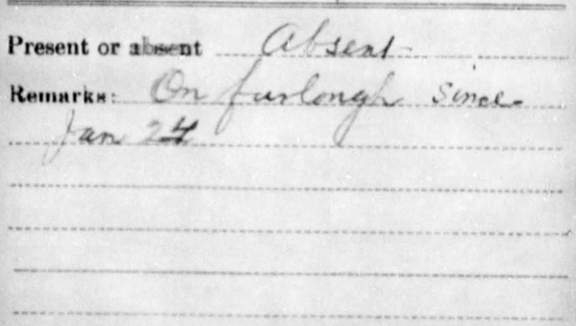 Present or absent Absent
Remarks: On furlough since
Jan 24